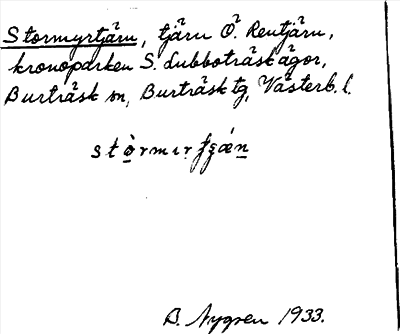 Stormyrtjärn, tjärn Ö. Rentjärn,
kronoparken S. Lubboträskägor,
Burträsk sn, Burträsk tg, Västerb. l.
B. Nygren 1933.